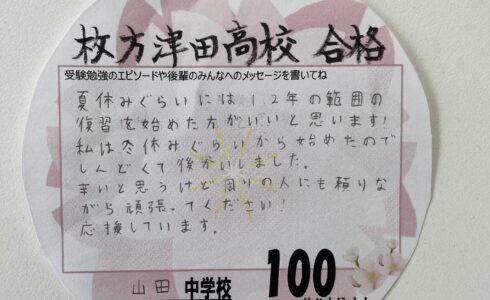 枚方津田高校 合格
受験勉強のエピソードや後輩のみんなへのメッセージを書いてね
夏休みぐらいには1,2年の範囲の
復習を始めた方がいいと思います!
私は冬休みぐらいから始めたので
しんどくて後かいしました。
辛いと思うけど周りの人にも頼りな
がら頑張ってください!
応援しています。
山田 中学校 100